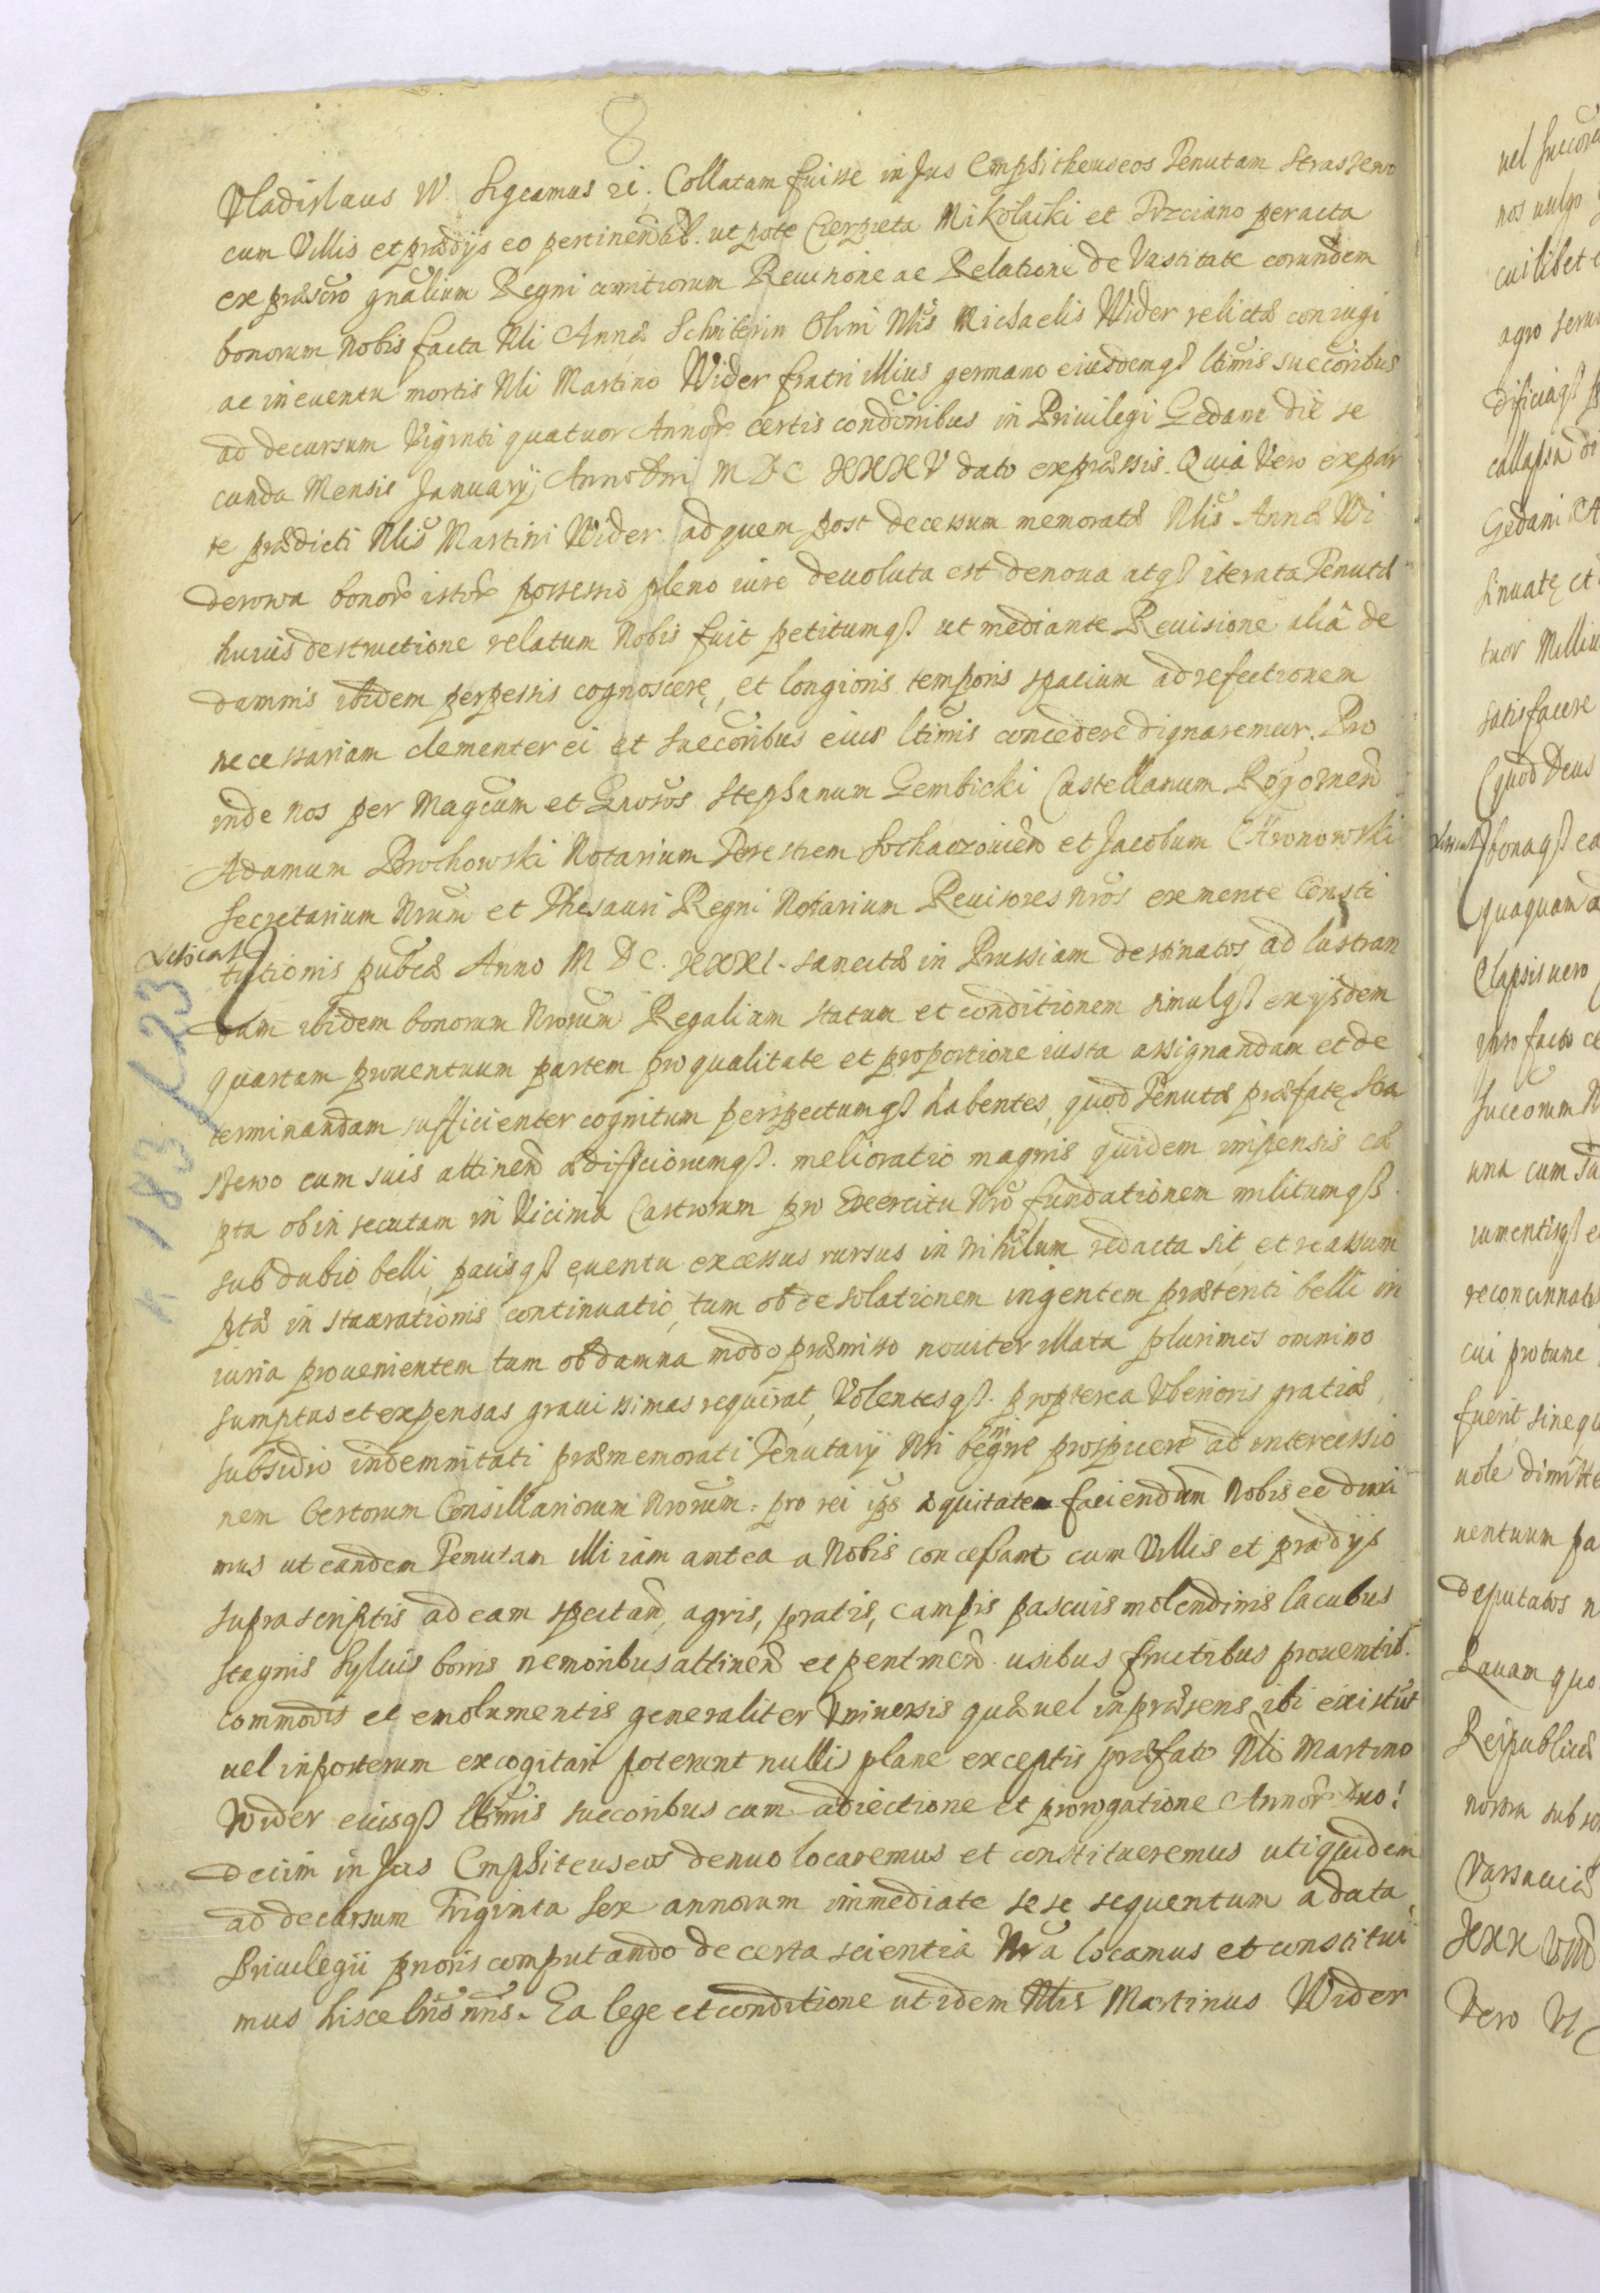 8
Vladislaus IV Sigcamus ꝛc. Collatam fuisse in Jus Emphitheuseos Tenutam Straszewo
cum Villis et prædijs eo pertinend. ut pote Cierpieta Mikolaiki et Trzciano peracta
ex præscro gnalium Regni comitiorum Reuisione ac Relatione de Vastitate eorundem
bonorum nobis facta Nli Annæ Schniterin Olim Nlis Michaelis Wider relictæ coniugi
ac in euentu mortis Nli Martino Wider fratri illius germano eiusdemqꝫ ltimis succoribus
ad decursum Viginti quatuor Annor certis condonibus in Privilegi Gedani die se
cunda Mensis January Anno Dni M D C XXXV dato expræssis. Quia Vero ex par
te prædicti Nlis Martini Wider ad quem post decessum memoratæ Nlis Annæ Wi
derowa bonor istor possessio pleno iure deuoluta est denoua atqꝫ iterata Tenutæ
huius destructione relatum Nobis fuit petitumqꝫ ut mediante Reuisione aliâ de
damnis ibidem perpessis cognoscere, et longioris temporis spacium ad refectionem
necessariam clementer ei et succoribus eius ltimis concedere dignaremur. Pro
inde nos per Magcum et Grosos Stephanum Gembicki Castellanum Rogoznen
Adamum Brochowski Notarium Terestrem Sochaczouien et Jacobum Chronowski
Secretarium Nrum et Thesauri Regni Notarium Reuisores nros ex mente Consti
tutionis pubcæ Anno M D C. XXXI. sancitæ in Prussiam destinatos ad lustran
dum ibidem bonorum Nrorum Regalium statum et conditionem simulqꝫ ex ijsdem
quartam prouentuum partem pro qualitate et proportione iusta assignandam et de
terminandam sufficienter cognitum perspectumqꝫ habentes, quod Tenutæ præfatę Stra
szewo cum suis attinen ædificiorumqꝫ. melioratio magnis quidem impensis cæ
pta ob in secutam in Vicinia Castrorum pro Exercitu Nro fundationem militumqꝫ.
sub dubio belli, pacisqꝫ euentu excessus rursus in nihilum redacta sit, et reassum
ptæ in staurationis continuatio, tum ob desolationem ingentem prætenti belli in
iuria prouenientem tum ob damna modo præmisso nouiter illata plurimos omnino
sumptus et expensas grauissimas requirat, Volentesqꝫ. propterea Vberioris gratiæ
subsidio indemnitati præmemorati Tenutarij Nri begne prospicere ad intercessio
nem Certorum Consiliariorum Nrorum. pro rei ips æquitate faciendum Nobis eē duxi
mus ut eandem Tenutam illi iam antea a Nobis concessam cum Villis et prædijs
suprascriptis ad eam spectan, agris, pratis, campis pascuis molendinis lacubus
stagnis Syluis borris nemoribus attinen et pentinen. usibus fructibus prouentib.
commodis et emolumentis generaliter Vniuersis quæ vel in præsens ibi existut
vel in posterum excogitari poterunt nullis plane exceptis præfato Nli Martino
Wider eiusqꝫ ltimis succoribus cum adiectione et prorogatione Annor duo!
decim in Jus Emphiteuseos denuo locaremus et constitueremus uti quidem
ad decursum Triginta Sex annorum immediate se se sequentum a data
Priuilegii prioris computando de certa scientia Nra locamus et constitui
mus hisce lris nris. Ea lege et conditione ut idem Nlis Martinus Wider
k 183/(23
vel succor
nos vulgo
cuilibet
agro seru
dificiaqꝫ
collapsa di
Gedani
sinuatę et
tuor Milliu
satisfacere
(quod Deus
bonaqꝫ ea
quaquam
Elapsis uero
ipso facto
Succorum
una cum
iumentisqꝫ
reconcinnatis
cui pro tunc
fuerit, sine
uole dimitte
uentuum pa
deputatos
Rauam quo
Reipublicæ
nostra sub
Varsauiæ
XXX
Vero VI